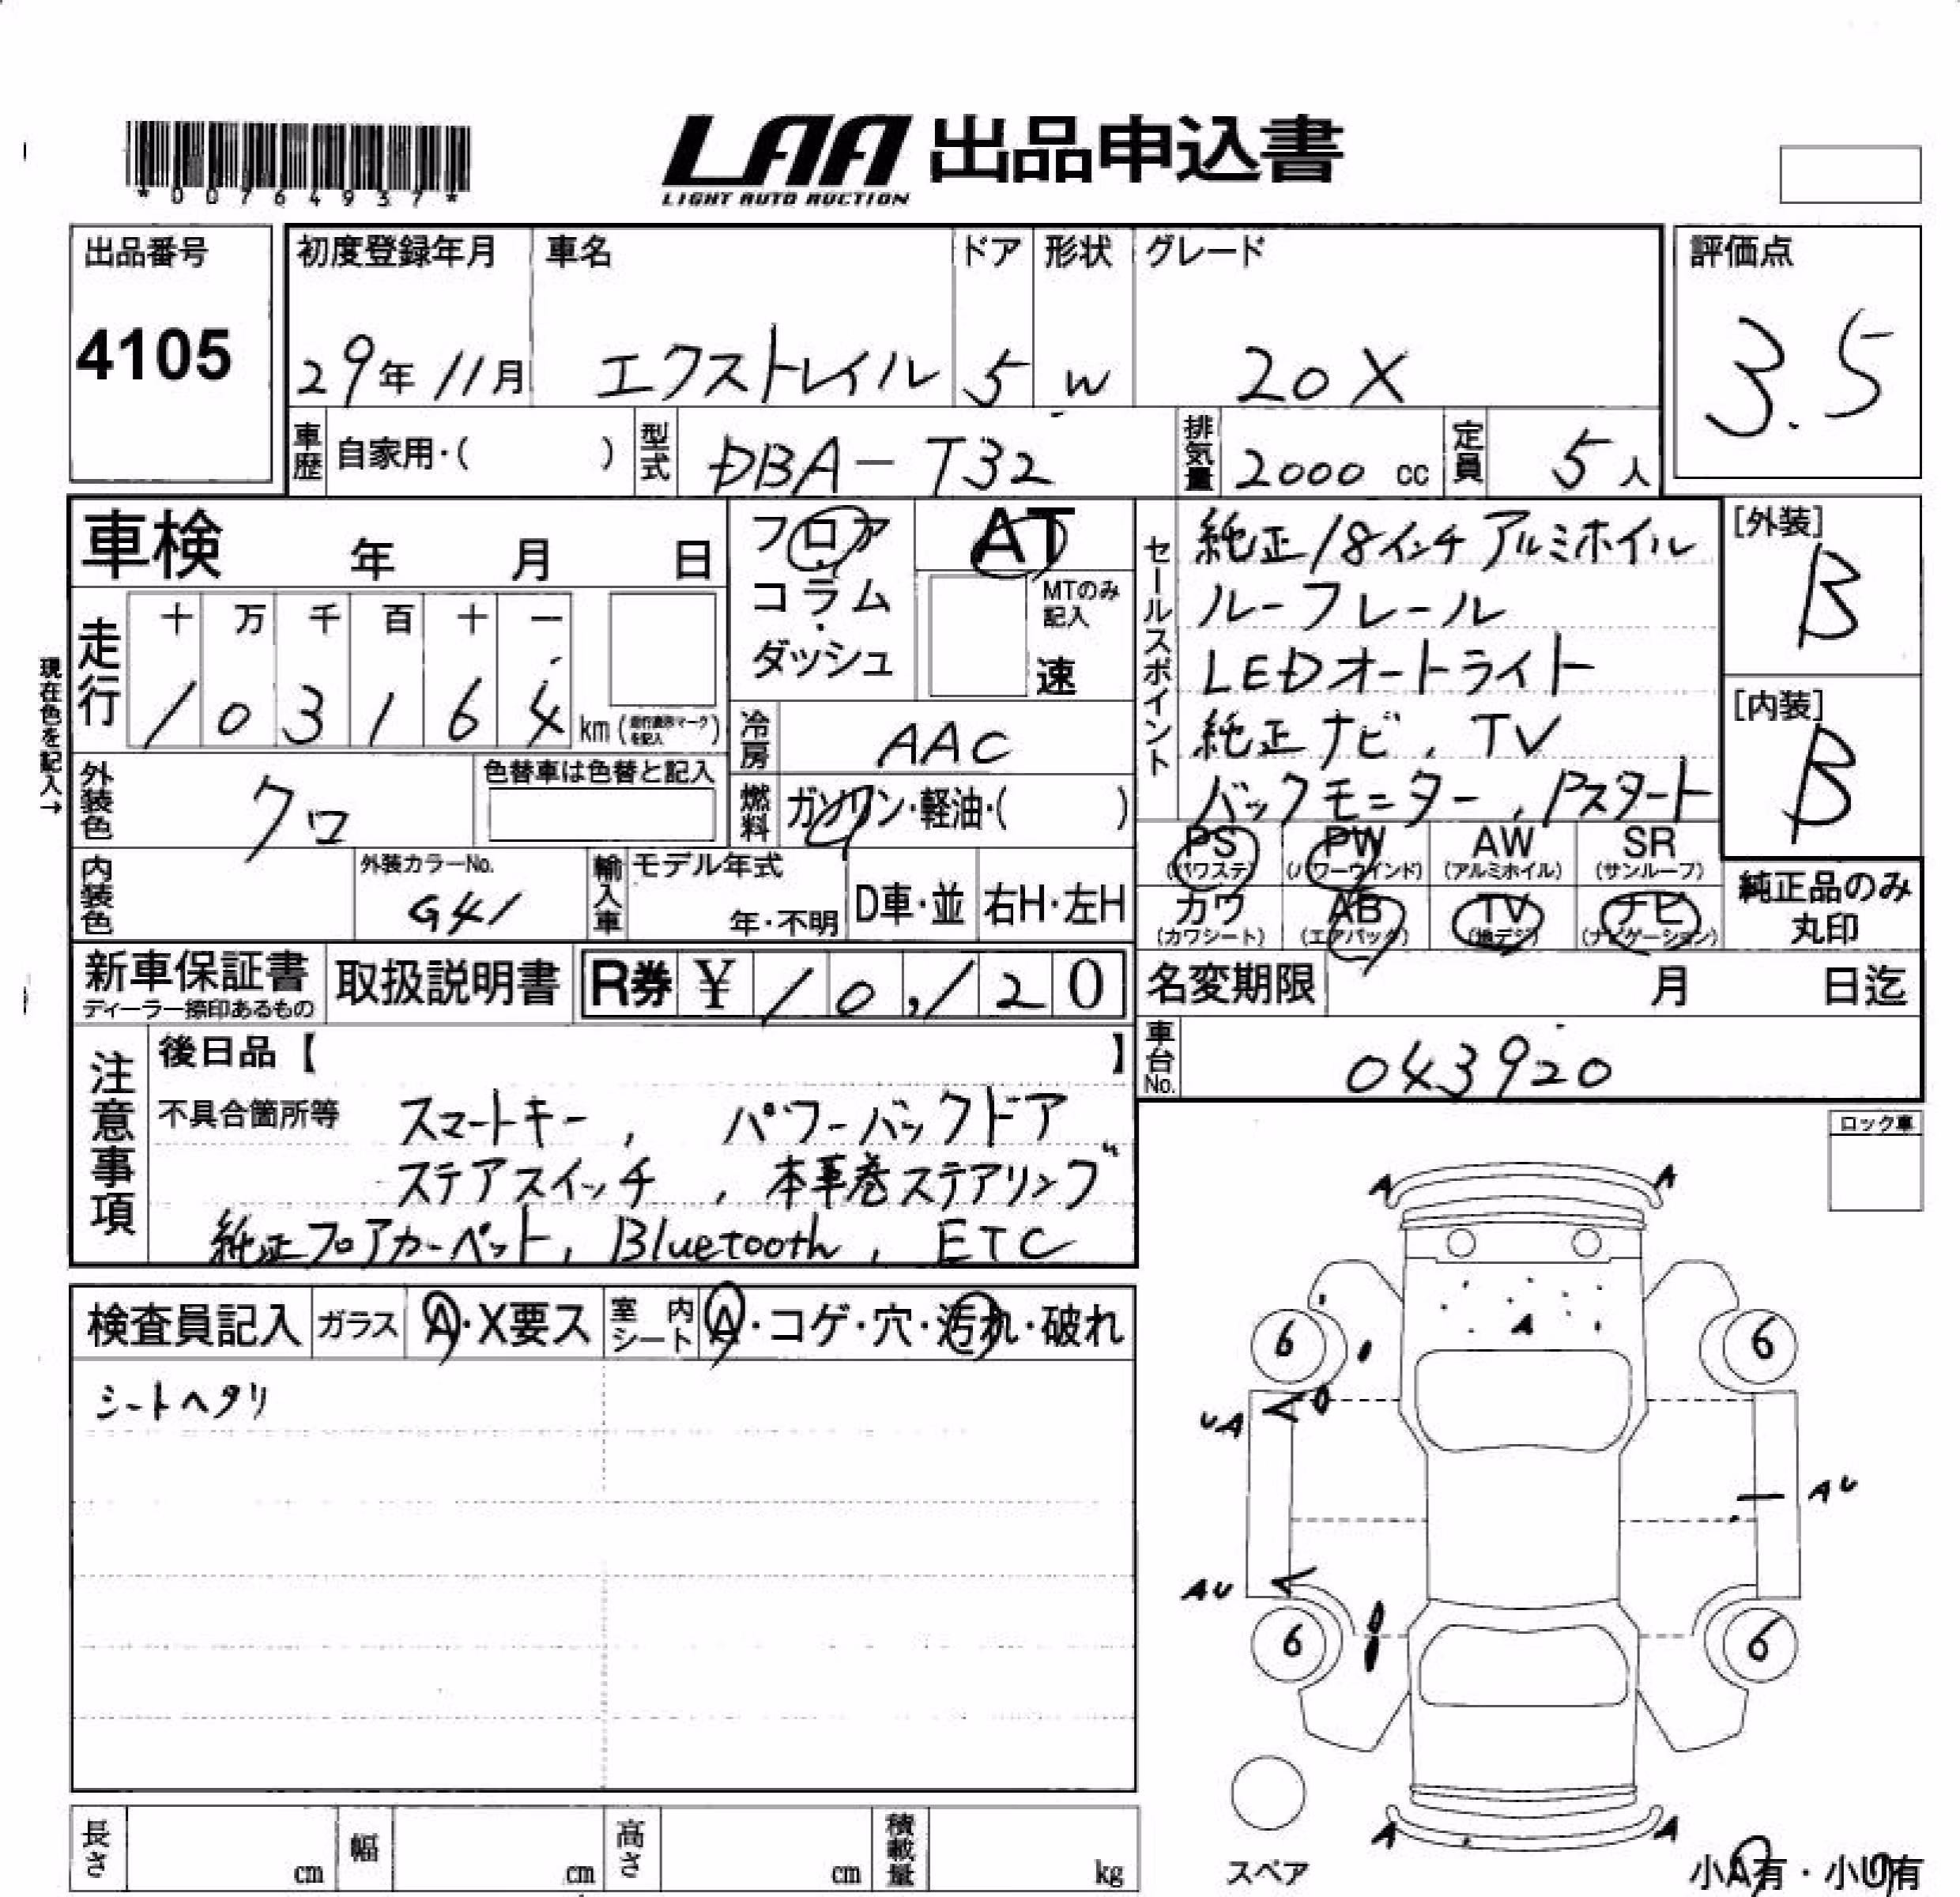 *00764937*
LAA 出品申込書
LIGHT AUTO AUCTION
出品番号
4105
初度登録年月 車名 ドア 形状 グレード
29年11月 エクストレイル 5 W 20X
評価点
3.5
車歴 自家用・( ) 型式 DBA-T32 排気量 2000 cc 定員 5人
車検 年 月 日
フロア
コラム
ダッシュ
AT
MTのみ記入
速
走行 十 万 千 百 十 一
103164 km(走行疑義マークを記入)
現在色を記入→
冷房 AAC
外装色 クロ 色替車は色替と記入
燃料 ガソリン・軽油・( )
内装色 外装カラーNo. G41
輸入車 モデル年式 年・不明 D車・並 右H・左H
新車保証書 ディーラー捺印あるもの
取扱説明書
R券 ¥10,120
セールスポイント
純正18インチアルミホイル
ルーフレール
LEDオートライト
純正ナビ, TV
バックモニター, Pスタート
[外装]
B
[内装]
B
PS (パワステ) PW (パワーウインド) AW (アルミホイル) SR (サンルーフ)
カワ (カワシート) AB (エアバック) TV (地デジ) ナビ (ナビゲーション)
純正品のみ丸印
名変期限 月 日迄
車台No. 043920
注意事項
後日品【 】
不具合箇所等 スマートキー, パワーバックドア
ステアスイッチ, 本革巻ステアリング
純正フロアカーペット, Bluetooth, ETC
検査員記入 ガラス A・X要ス 室内シート A・コゲ・穴・汚れ・破れ
シートヘタリ
ロック車
A A
A
6 6
UA
AU
AU
6 6
A A
スペア
小A有・小U有
長さ cm 幅 cm 高さ cm 積載量 kg